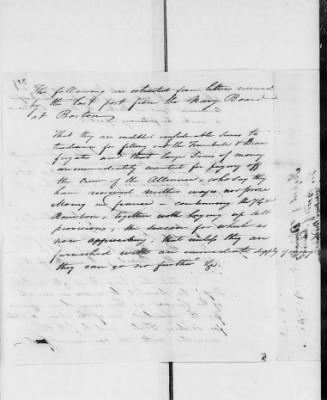 The following are extracted from letters received
by the last post from the Navy Board
at Boston
That they are indebted considerable Sums to
tradesmen for fitting out the Trumbull & Dean
frigates and that large Sums of money
are immediately wanted for paying off
the Crew of the Alliance, who say they
have received neither wages nor prize
Money in france — the 74 &
Bourbon, together with laying up salt
provisions, the season for which is
now approaching. That unless they are
furnished with an immediate supply of money
"they can go no further" &c.